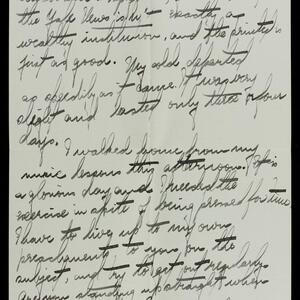 the Yale News isn't exactly a
wealthy institution, and the printed is
just as good. My cold departed
as speedily as it came. It was very
slight and lasted only three or four
days.
I walked home from my
music lessons this afternoon. It's
a glorious day and I need the
exercise in spite of being pressed for time
I have to live up to my own
preachments to you on the
subject, and try to get out regularly.
Are you standing up straight when